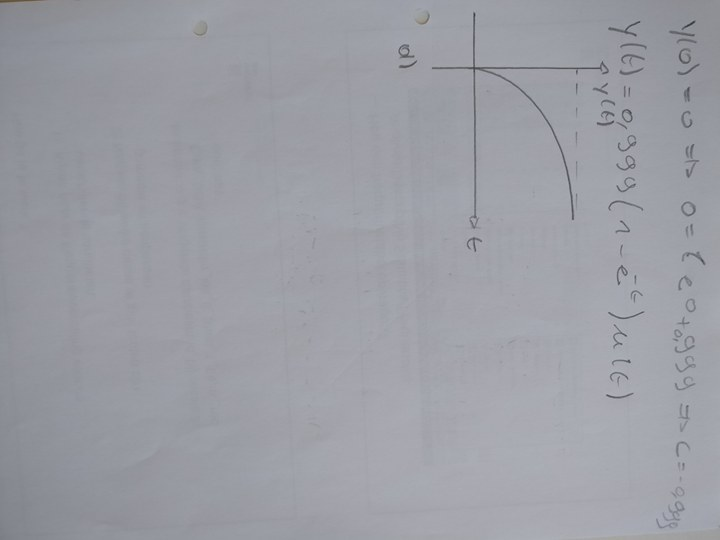 y(0) = 0 => 0 = C e^0 + 0,999 => C = -0,999
y(t) = 0,999(1 - e^-t) u(t)
y(t)
t
d)